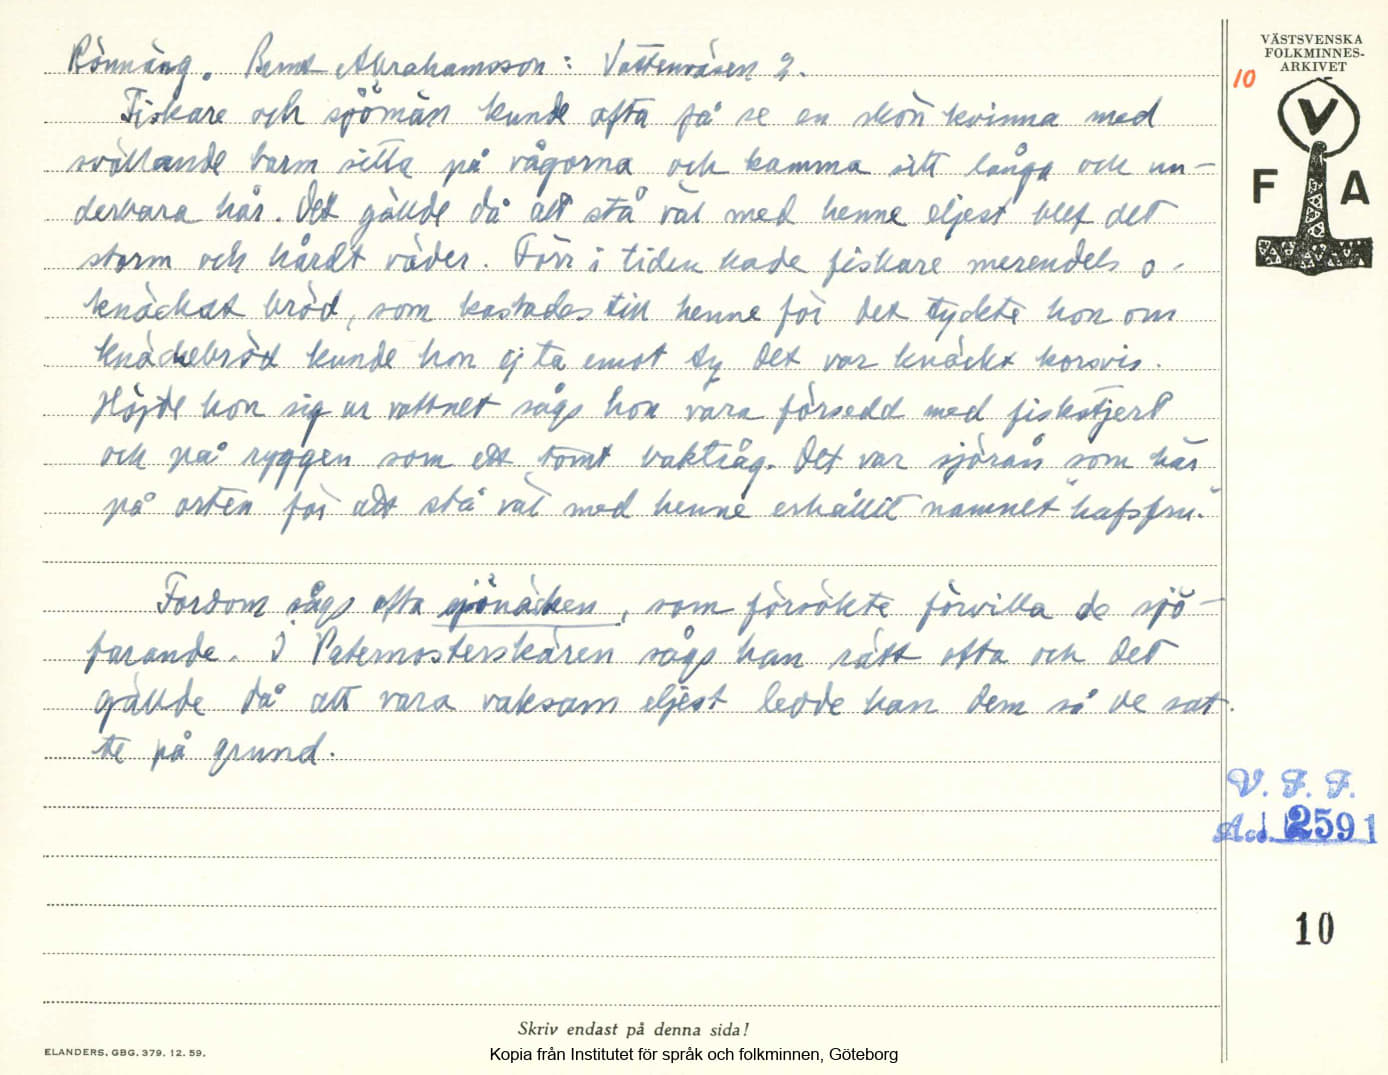 Rönnäng. Bernt Abrahamsson: Vattenväsen 2.
Fiskare och sjömän kunde ofta få se en skön kvinna med
svällande barm sitta på vågorna och kamma sitt långa och un-
derbara hår. Det gällde då att stå väl med henne eljest blef det
storm och hårdt väder. Förr i tiden hade fiskare merendels o-
knäckat bröd, som kastades till henne för det tyckte hon om
knäckebröd kunde hon ej ta emot ty det var knäckt korsvis.
Höjde hon sig ur vattnet sågs hon vara försedd med fiskstjert
och på ryggen som ett tomt baktråg. Det var sjörån som här
på orten för att stå väl med henne erhållit namnet "hafsfru."
Fordom sågs ofta sjönäcken, som försökte förvilla de sjö-
farande. I Paternosterskären sågs han rätt ofta och det
gällde då att vara vaksam eljest ledde han dem så de sat-
te på grund.
VÄSTSVENSKA
FOLKMINNES-
ARKIVET
10
V
F A
V. F. F.
Acc. 2591
10
Skriv endast på denna sida!
ELANDERS, GBG. 379. 12. 59.
Kopia från Institutet för språk och folkminnen, Göteborg